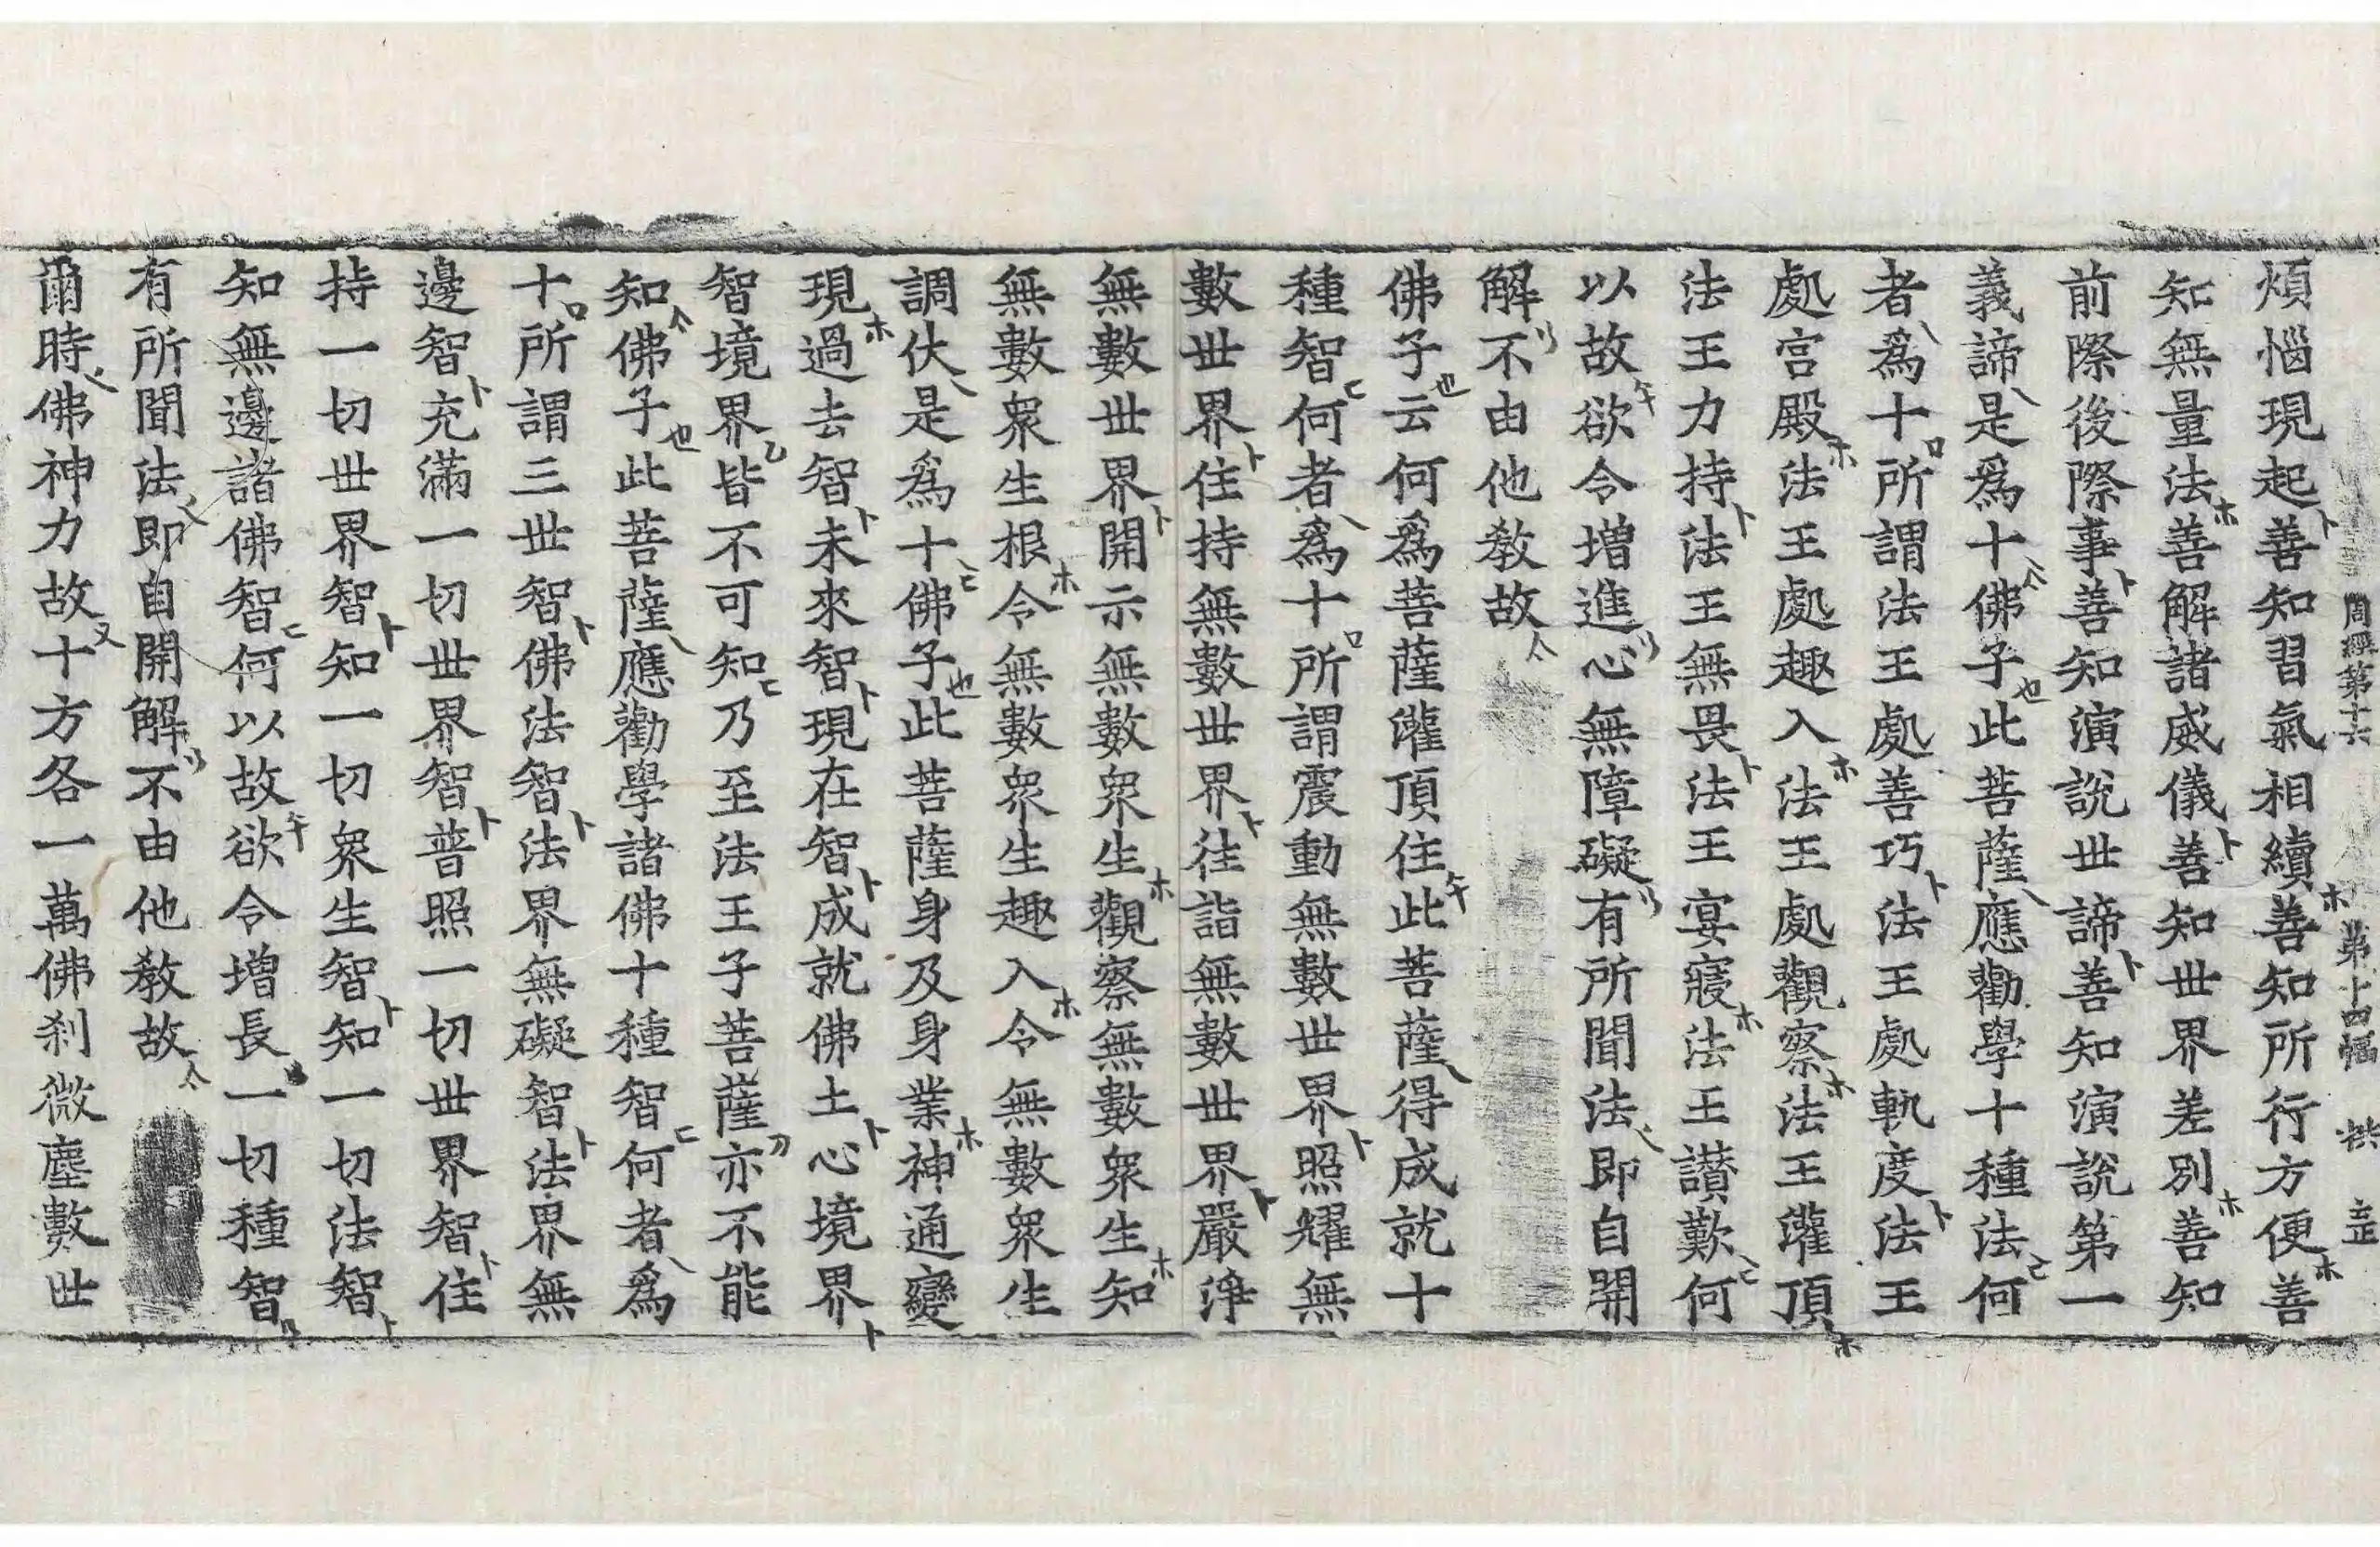 周經第十六 第十四幅 拱 正
煩惱現起善知習氣相續善知所行方便善
知無量法善解諸威儀善知世界差別善知
前際後際事善知演說世諦善知演說第一
義諦是爲十佛子此菩薩應勸學十種法何
者爲十所謂法王處善巧法王處軌度法王
處宮殿法王處趣入法王處觀察法王灌頂
法王力持法王無畏法王宴寢法王讃歎何
以故欲令增進心無障礙有所聞法即自開
解不由他教故
佛子云何爲菩薩灌頂住此菩薩得成就十
種智何者爲十所謂震動無數世界照耀無
數世界住持無數世界往詣無數世界嚴淨
無數世界開示無數衆生觀察無數衆生知
無數衆生根令無數衆生趣入令無數衆生
調伏是爲十佛子此菩薩身及身業神通變
現過去智未來智現在智成就佛土心境界
智境界皆不可知乃至法王子菩薩亦不能
知佛子此菩薩應勸學諸佛十種智何者爲
十所謂三世智佛法智法界無礙智法界無
邊智充滿一切世界智普照一切世界智住
持一切世界智知一切衆生智知一切法智
知無邊諸佛智何以故欲令增長一切種智
有所聞法即自開解不由他教故
爾時佛神力故十方各一萬佛刹微塵數世